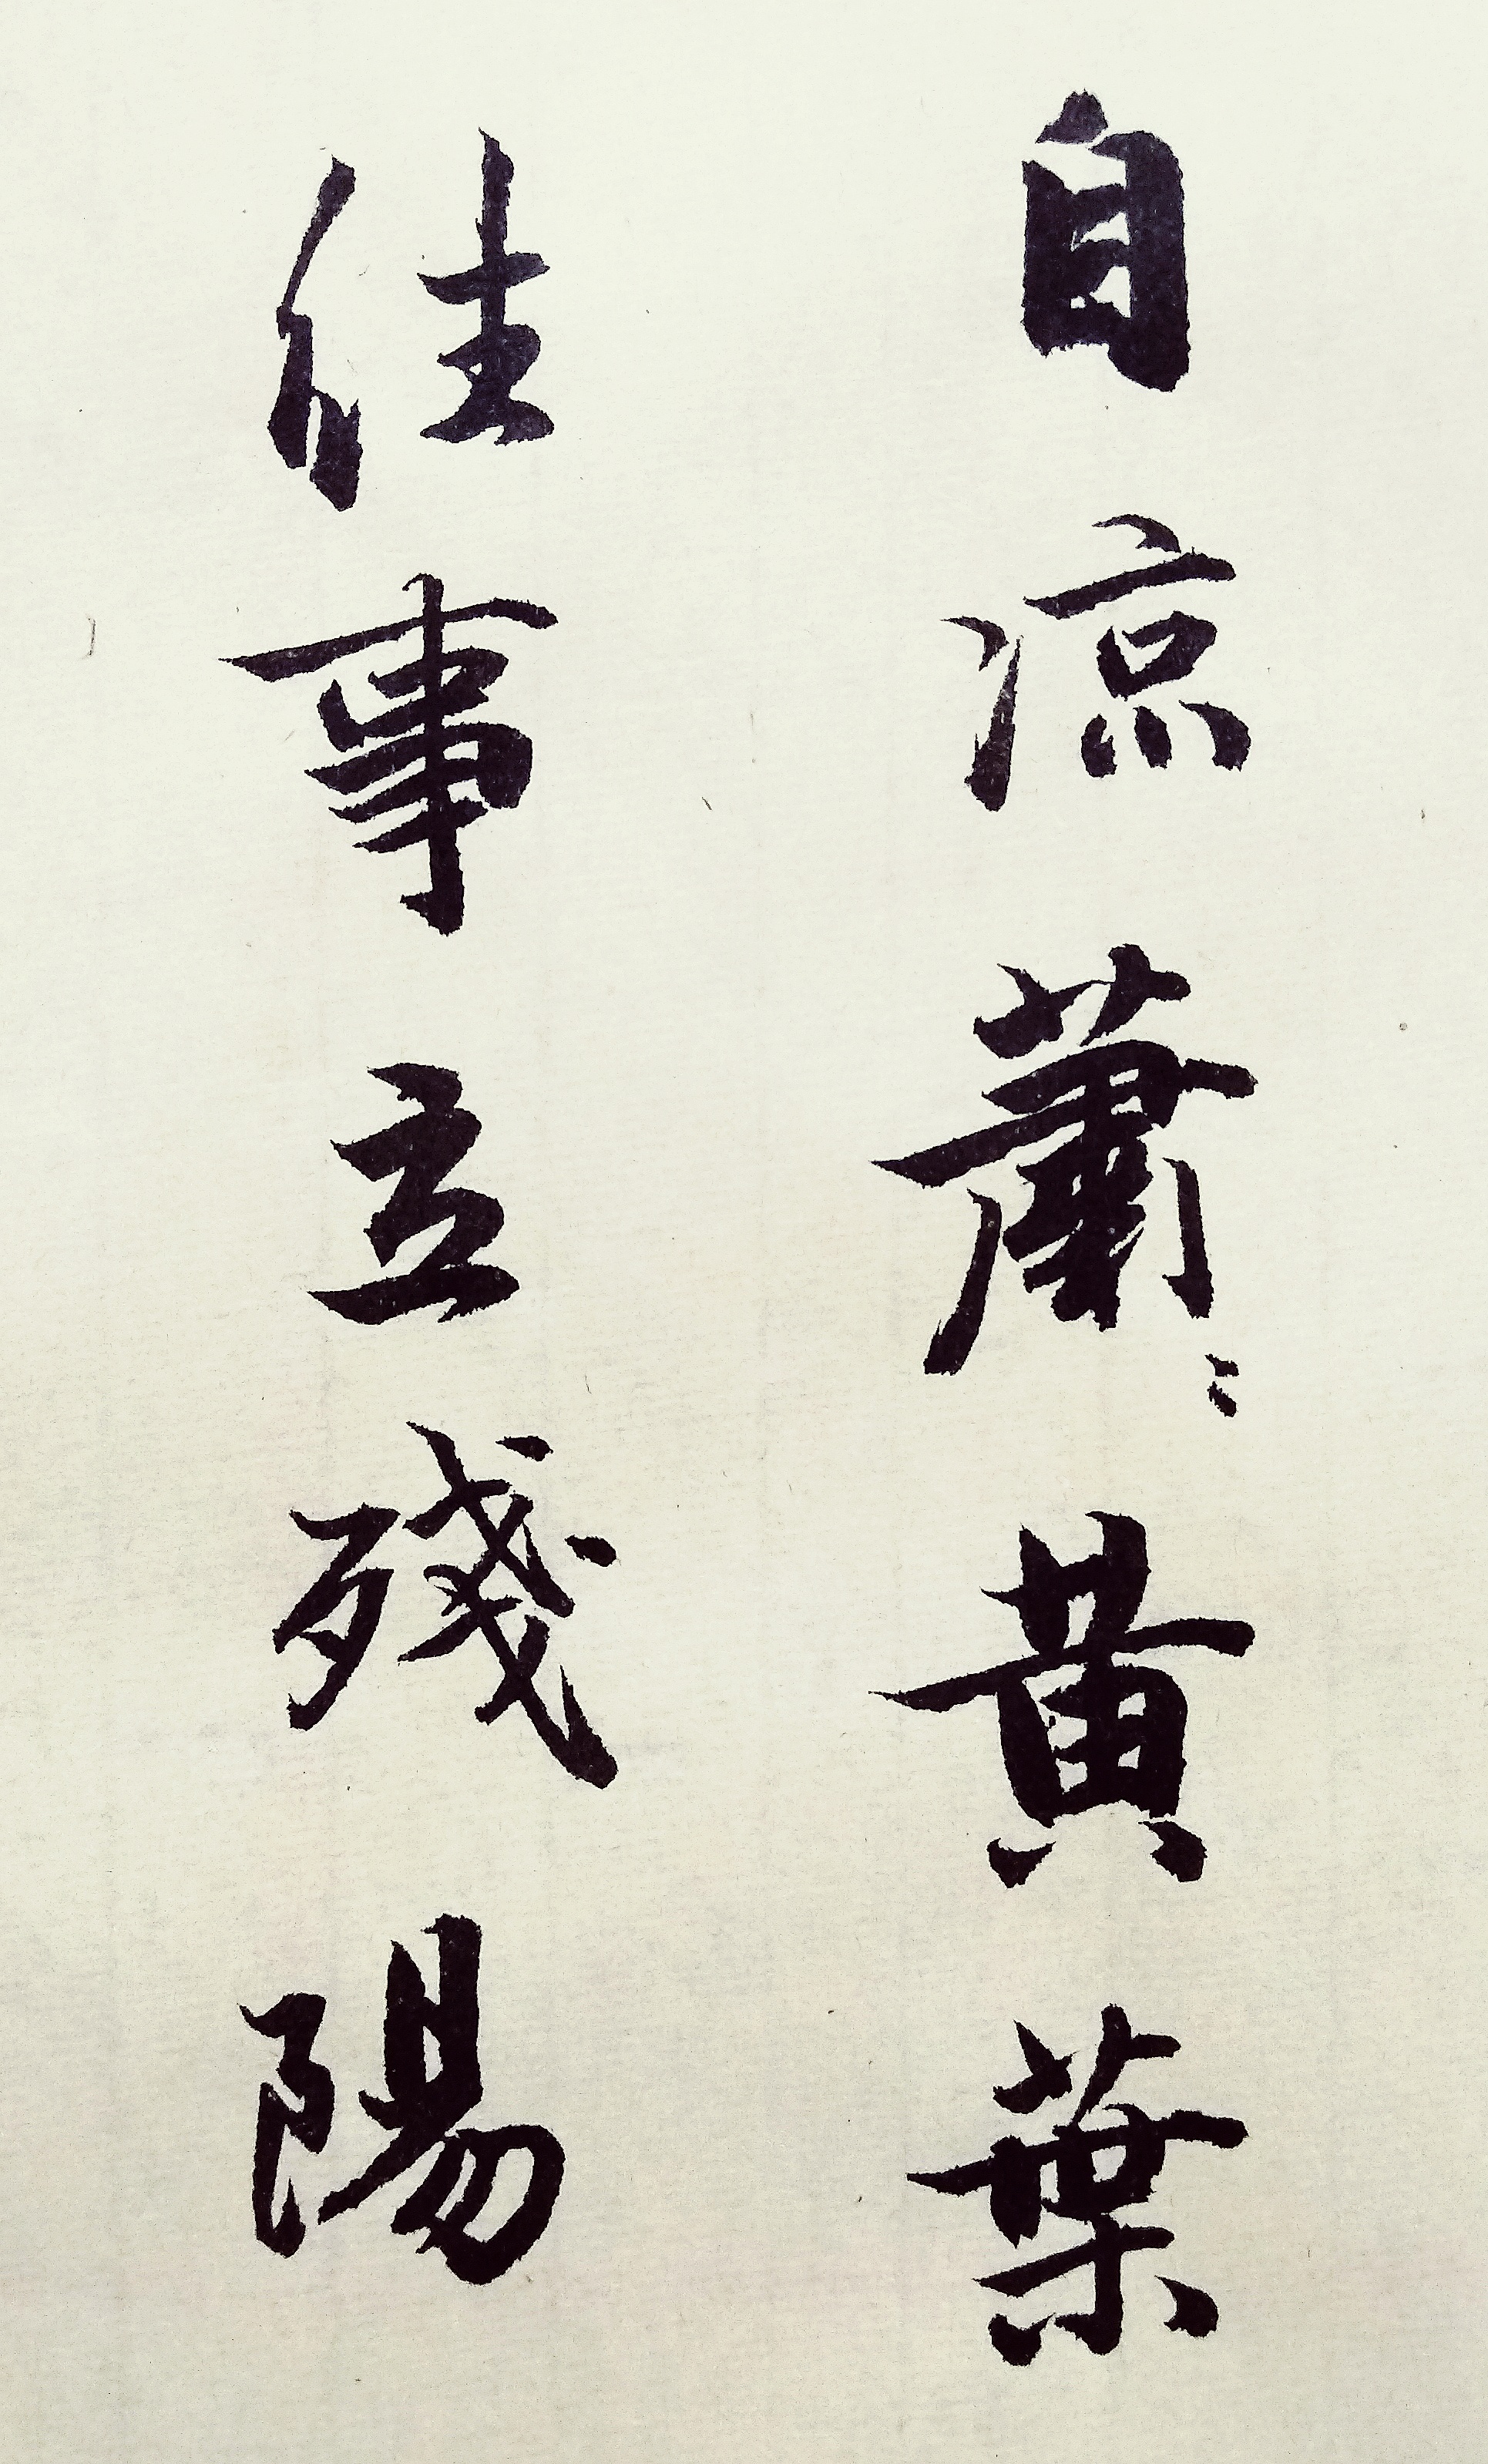 自涼蕭〻黄葉
往事立殘陽